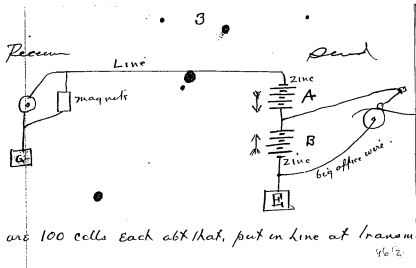 3
Receive
Send
Line
zinc
A
magnets
B
zinc
big office wire.
G
E
are 100 cells Each abt that, put in Line at Transm